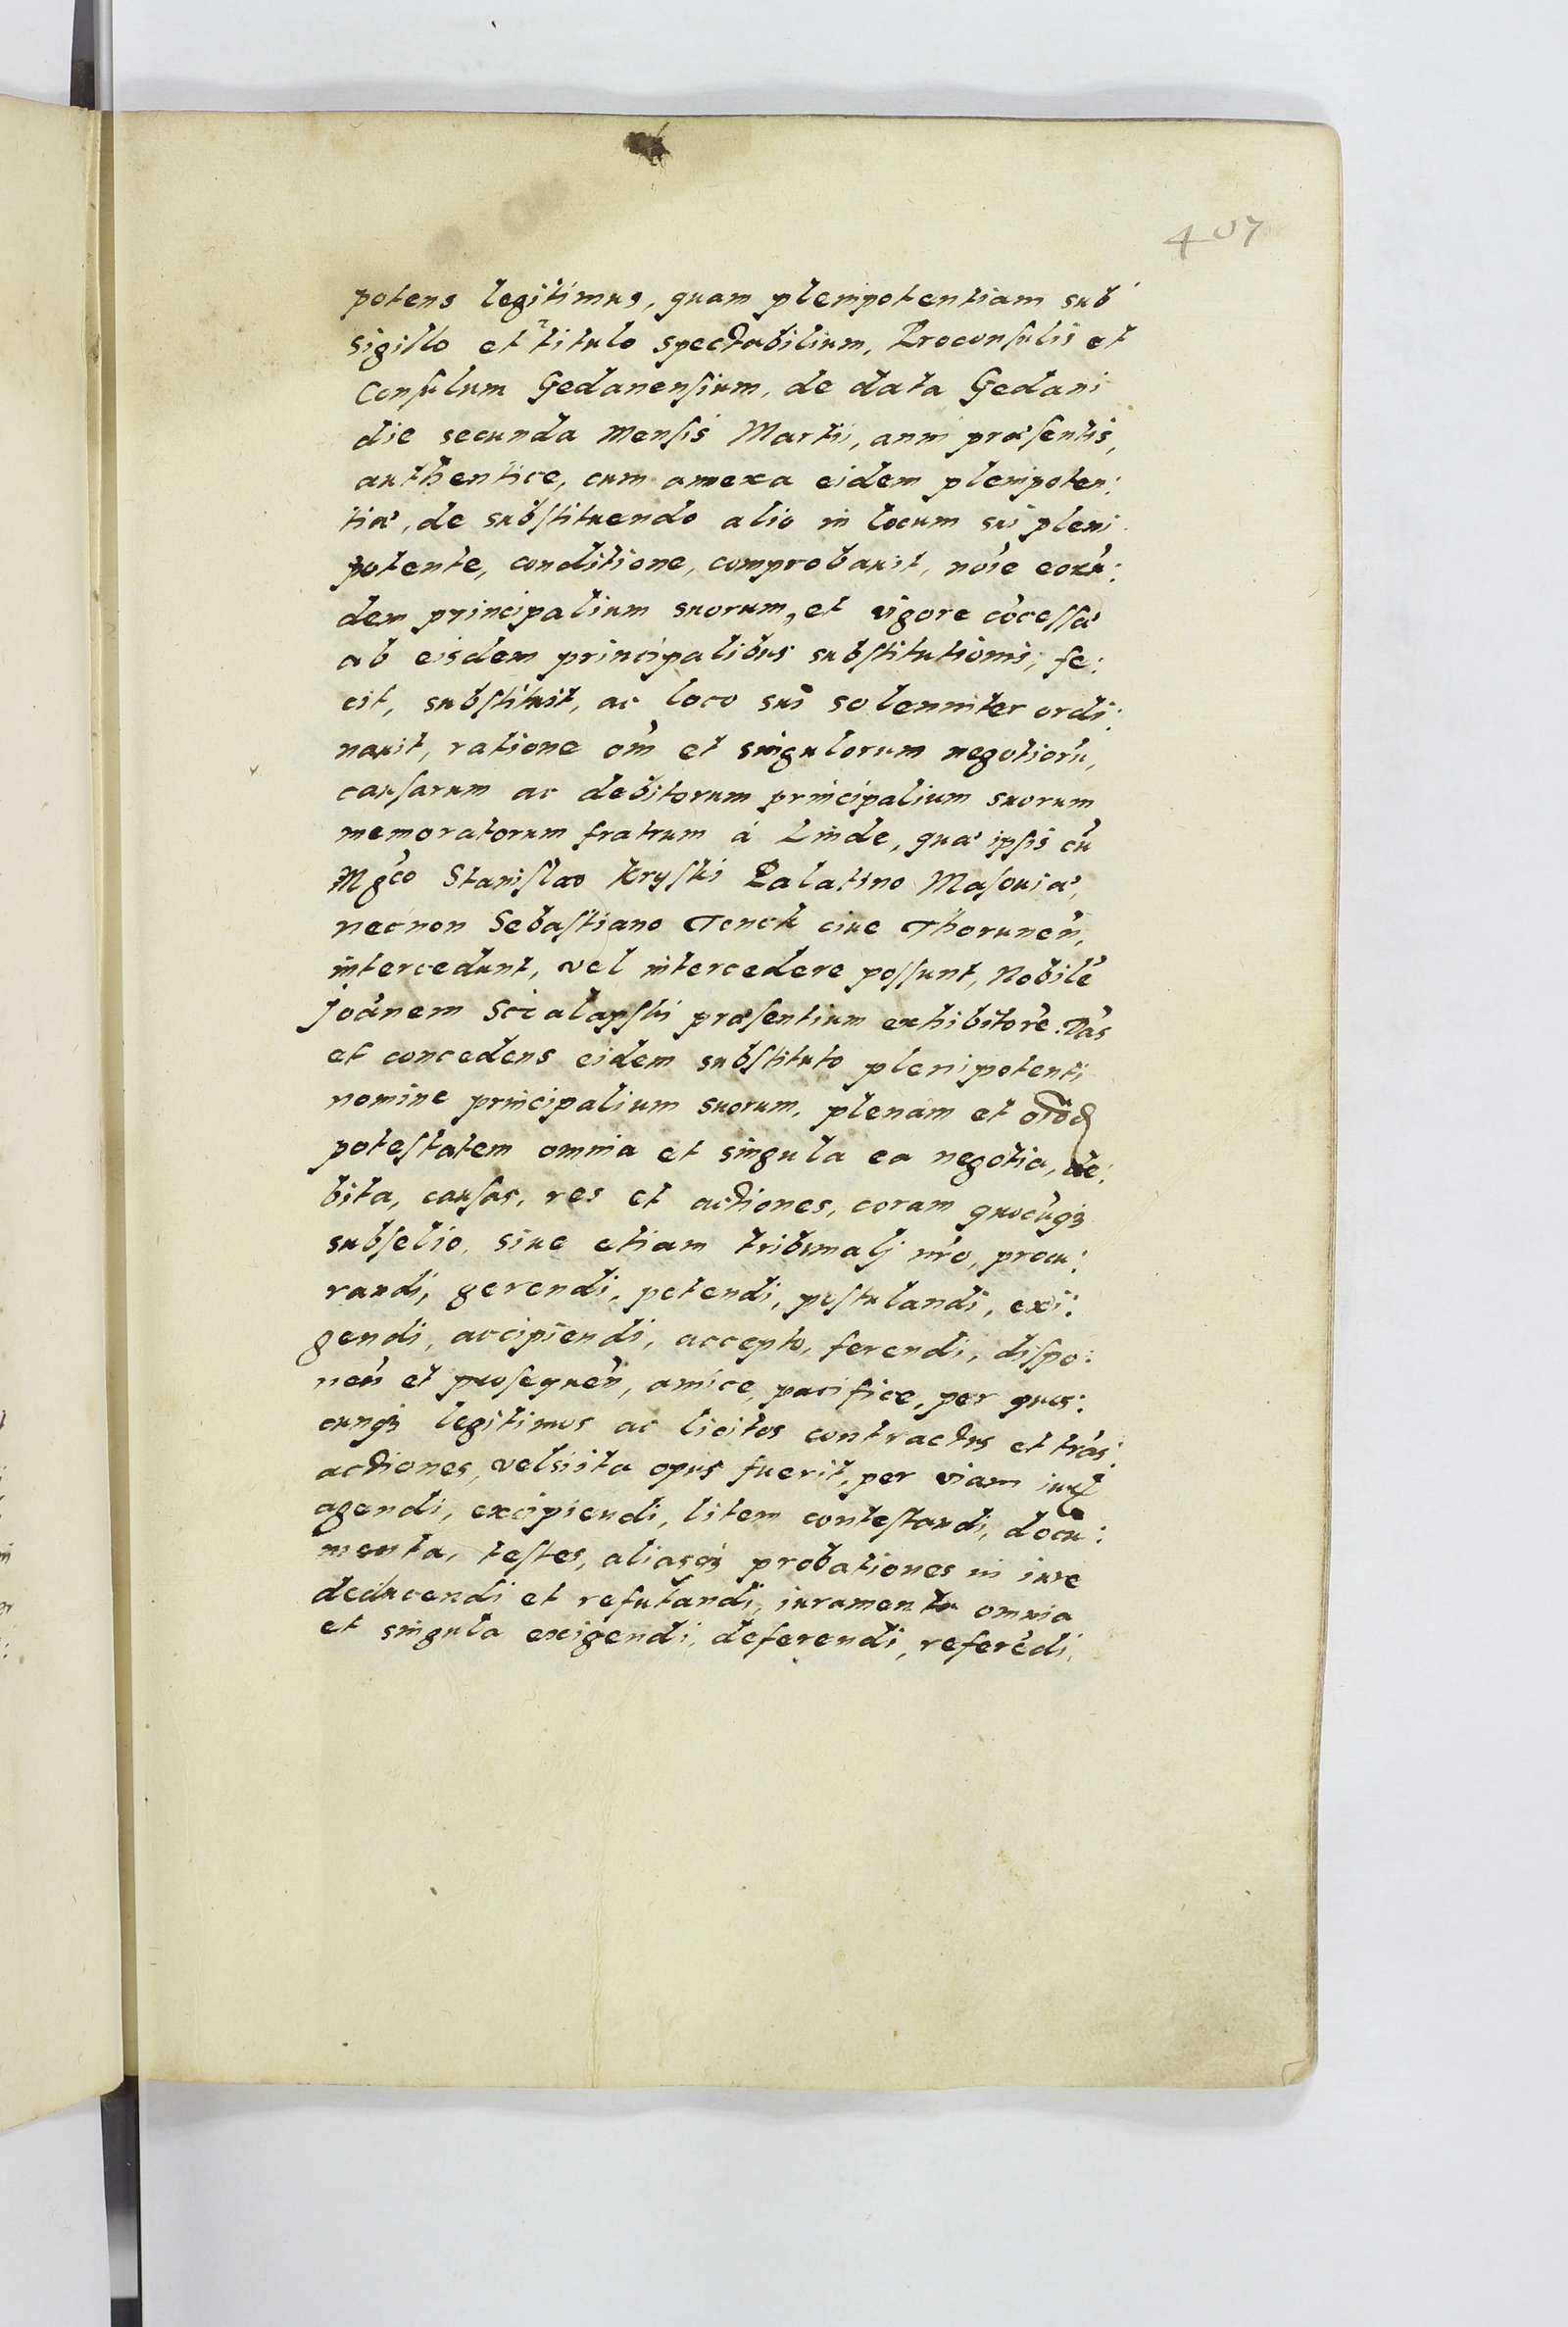 407
potens legitimus, quam plenipotentiam sub
sigillo et titulo spectabilium, Proconsulis et
Consulum Gedanensium, de data Gedani
die secunda mensis Martii, anni præsentis,
authentice, cum annexa eidem plenipoten:
tiæ, de substituendo alio in locum sui pleni
potente, conditione, comprobauit, noīe eorū:
dem principalium suorum, et vigore cōcessæ
ab eisdem principalibus substitutionis, fe:
cit, substituit, ac loco sui solenniter ordi:
nauit, ratione om̄ et singulorum negotiorū,
causarum ac debitorum principalium suorum
memoratorum fratrum à Linde, quæ ipsis cū
Mgc̄o Stanislao Kryski Palatino Masouiæ,
necnon Sebastiano Tenck ciue Thorunen̄,
intercedunt, vel intercedere possunt, Nobilē
Joānem Scialapski præsentium exhibitorē. Dās
et concedens eidem substituto plenipotenti
nomine principalium suorum, plenam et
potestatem omnia et singula ea negotia, de:
bita, causas, res et actiones, coram quocūqꝫ
subselio, siue etiam tribunalj nr̄o, procu:
randi, gerendi, petendi, postulandi, exi:
gendi, accipiendi, accepto, ferendi, dispo:
nen̄ et prosequen̄, amice, pacifice, per quos:
cunqꝫ legitimos ac licitos contractus et trās:
actiones, vel si ita opus fuerit, per viam iur̄
agendi, excipiendi, litem contestandi, docu:
menta, testes, aliasqꝫ probationes in iure
deducendi et refutandi, iuramenta omnia
et singula exigendi, deferendi, referēdi,